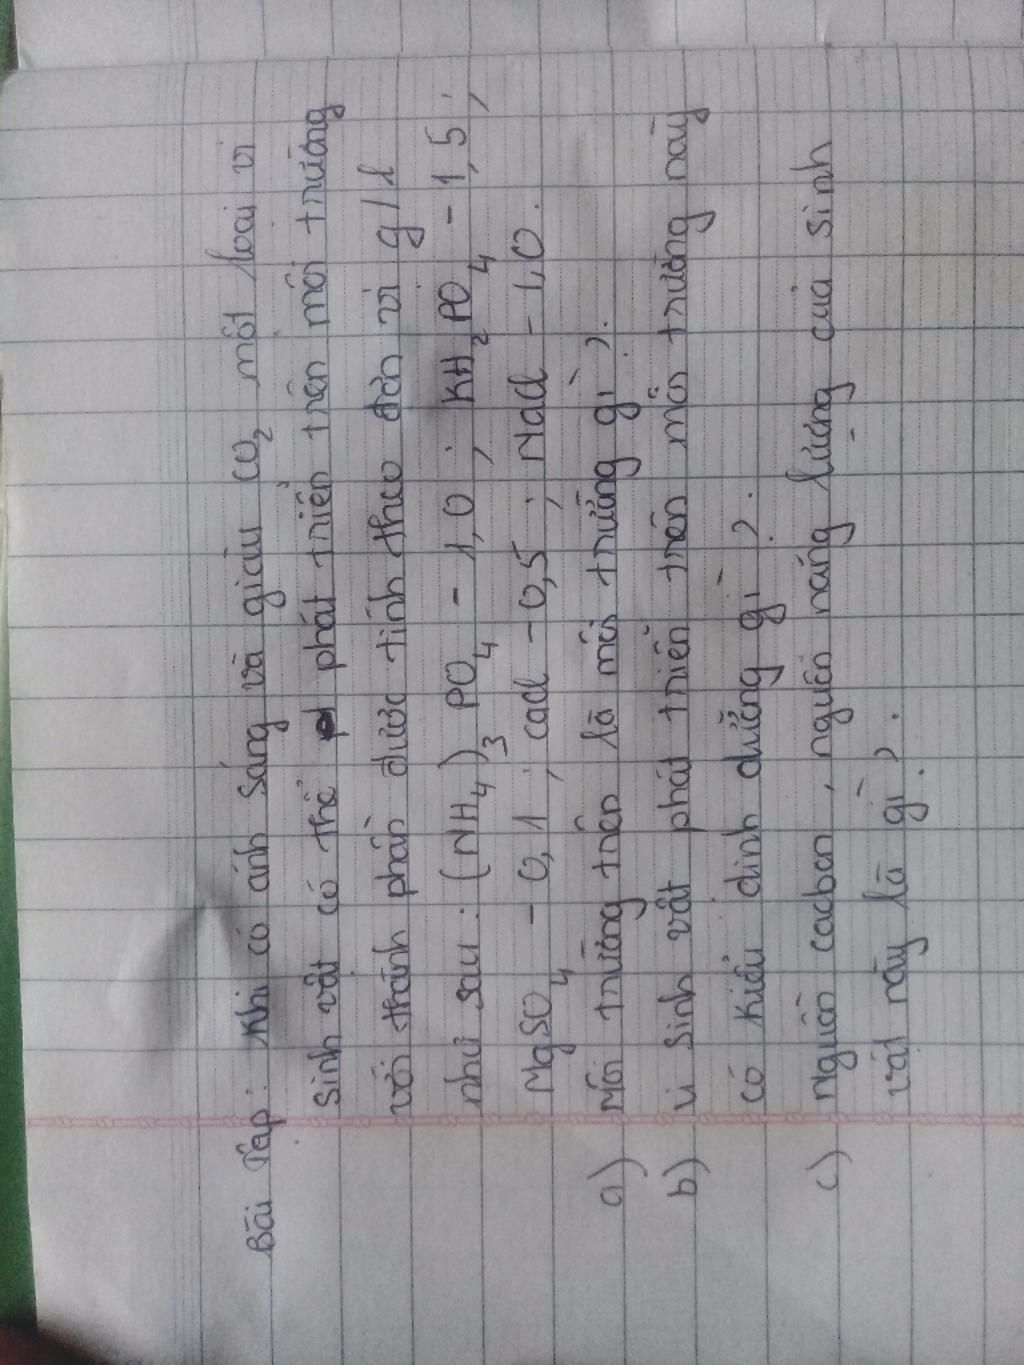 Bài Tập: Khi có ánh sáng và giàu CO2 một loại vi
sinh vật có thể phát triển trên môi trường
với thành phần được tính theo đơn vị g/l
như sau: (NH4)3 PO4 - 1,0; KH2PO4 - 1,5;
MgSO4 - 0,1; cacl - 0,5; Nacl - 1,0.
a) Môi trường trên là môi trường gì?.
b) Vi sinh vật phát triển trên môi trường này
có kiểu dinh dưỡng gì?.
c) Nguồn cacbon, nguồn năng lượng của sinh
vật này là gì?.